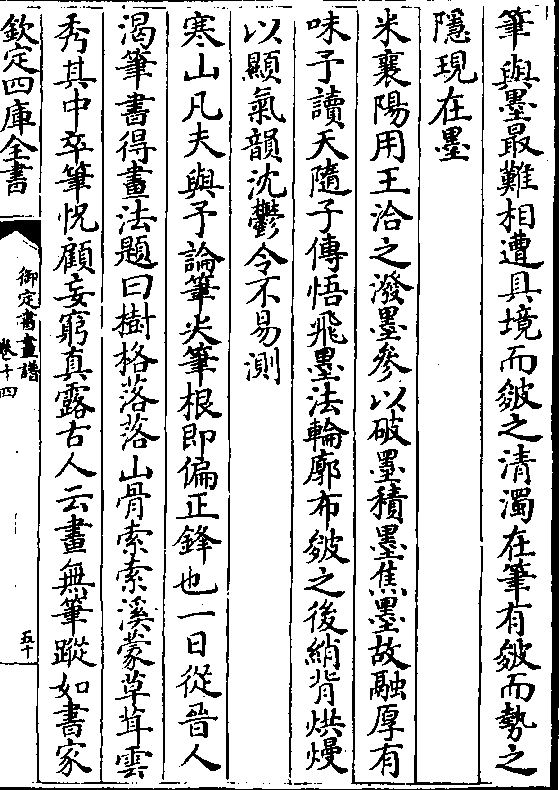 筆與墨最難相遭具境而皴之清濁在筆有皴而勢之
隱現在墨
米襄陽用王洽之潑墨參以破墨積墨焦墨故融厚有
味予讀天隨子傳悟飛墨法輪廓布皴之後綃背烘熳
以顯氣韻沈鬱令不易測
寒山凡夫與予論筆尖筆根即偏正鋒也一日從晉人
渴筆書得畫法題曰樹格落落山骨索索溪蒙草茸雲
秀其中卒筆怳顧妄窮真露古人云畫無筆蹤如書家
欽定四庫全書
御定書畫譜
卷十四
五十